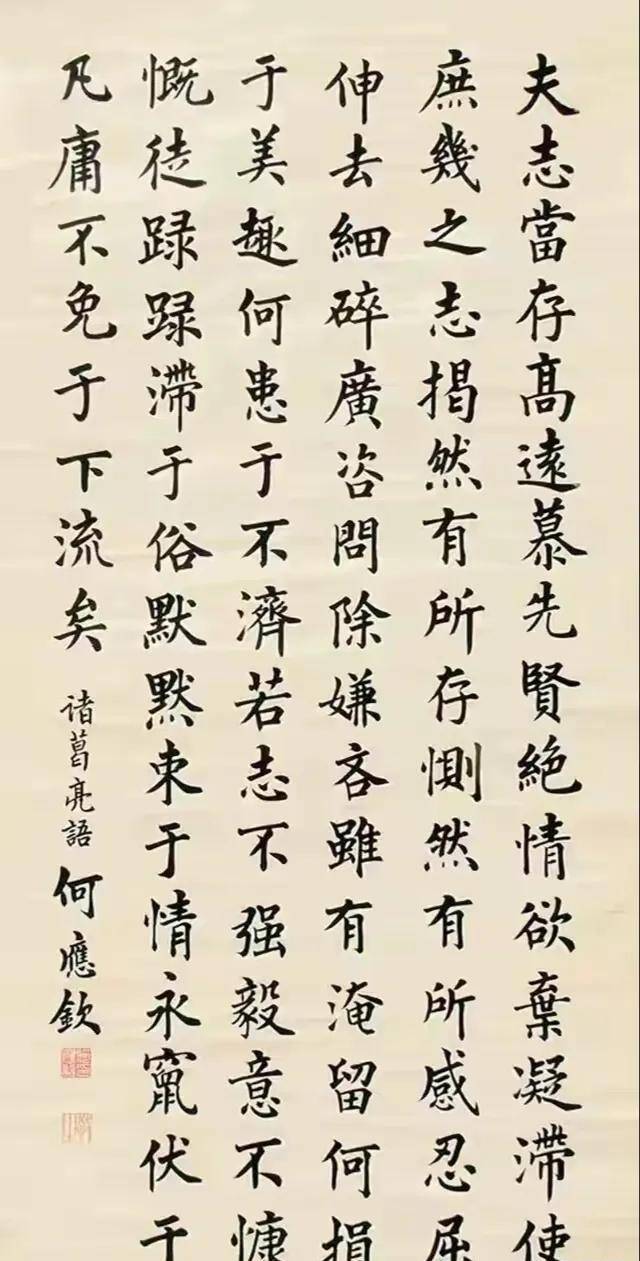 夫志當存髙遠慕先賢絶情欲棄凝滯使
庶幾之志揭然有所存惻然有所感忍屈
伸去細碎廣咨問除嫌吝雖有淹留何損
于美趣何患于不濟若志不强毅意不慷
慨徒碌碌滯于俗默默束于情永竄伏于
凡庸不免于下流矣
諸葛亮語
何應欽